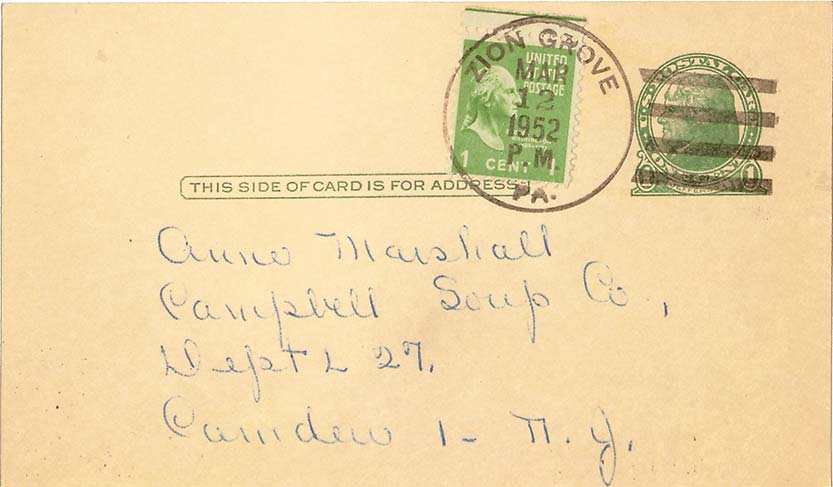 ZION GROVE
MAR
12
1952
P.M.
PA.
UNITED
STATES
POSTAGE
WASHINGTON
1 CENT 1
U.S. POSTAL CARD
1
THIS SIDE OF CARD IS FOR ADDRESS
Anne Marshall
Campbell Soup Co,
Dept L 27.
Camden 1- N. J.